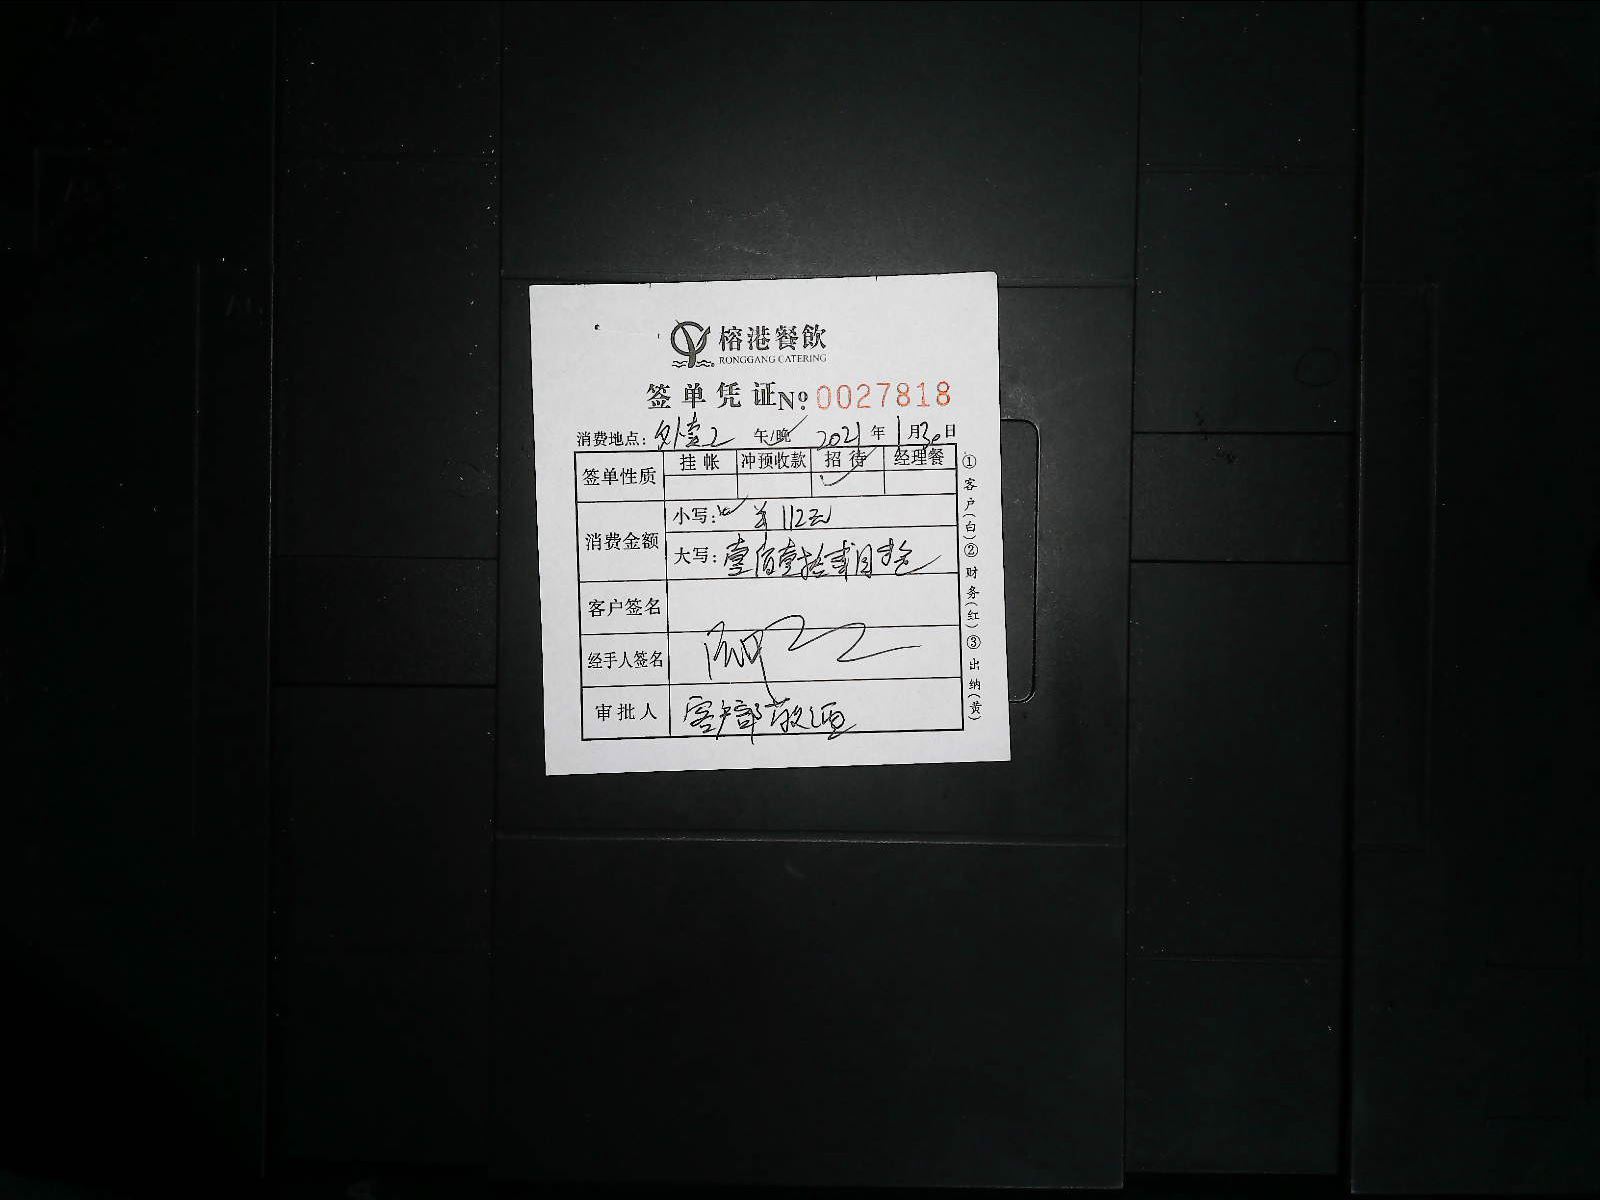 榕港餐飲
RONGGANG CATERING
签单凭证 Nº 0027818
消费地点: 外卖2 午/晚 2021年1月30日
签单性质 挂帐 冲预收款 招待 经理餐
消费金额
小写: 112元
大写: 壹佰壹拾贰圆整
客户签名
经手人签名
审批人 客户部敬酒
①客户(白)②财务(红)③出纳(黄)